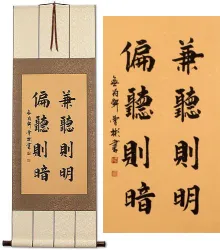 兼聽則明
偏聽則暗